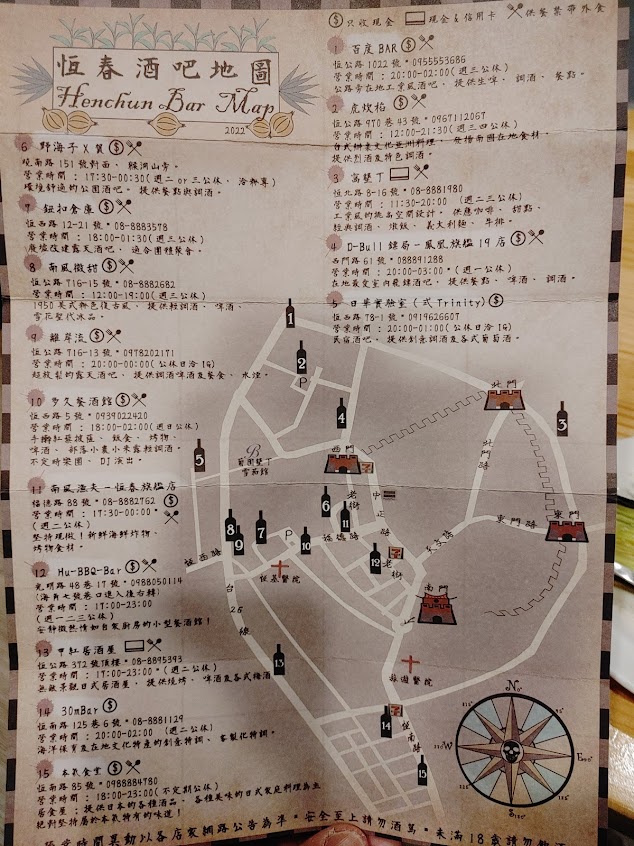 只收現金 現金&信用卡 供餐禁帶外食
恆春酒吧地圖
Henchun Bar Map
2022
1 百度 BAR
恆公路 1022 號 * 0955553686
營業時間 : 20:00-02:00(週三公休)
公路旁在地工業風酒吧、提供生啤、調酒、餐點。
2 虎炊桔
恆公路 970 巷 43 號 * 0967112067
營業時間 : 12:00-21:30(週三四公休)
提供烈酒及特色調酒。
3 窩墾丁
恆北路 8-16 號 * 08-8881980
營業時間 : 11:30-20:00 (週二三公休)
工業風的挑高空間設計。供應咖啡、甜點、
輕調酒、燉飯、義大利麵、牛排。
4 D-Bull 鏢局-鳳凰旗艦 19 店
西門路 61 號 * 088891288
營業時間 : 20:00-03:00 * (週一公休)
在地最食室內飛鏢酒吧、提供啤酒、調酒。
5 日華實驗室 (弍 Trinity)
恆西路 78-1 號 * 0919626607
營業時間 : 20:00-01:00(公休日洽 IG)
民宿酒吧、提供創意調酒及各式葡萄酒。
6 野海子 X 貨
曉南路 151 號對面、猴洞山旁。
營業時間 : 17:30-00:30(週二 or 三公休、洽粉專)
環境舒適的公園酒吧。提供餐點與調酒。
7 鈕扣倉庫
恆西路 12-21 號 * 08-8883578
營業時間 : 18:00-01:30(週三公休)
廢墟改建露天酒吧、適合團體聚會。
8 南風微甜
恆公路 716-15 號 * 08-8882682
營業時間 : 12:00-19:00(週三公休)
1950 美式粉色復古風、提供輕調酒、啤酒、
雪花聖代冰品。
9 離岸流
恆公路 716-13 號 * 0978202171
營業時間 : 20:00-00:00(公休日洽 IG)
超放鬆的露天酒吧、提供調酒啤酒及餐食、水煙。
10 多久餐酒館
恆西路 5 號 * 0939022420
營業時間 : 18:00-02:00(週日公休)
手擀料蔡披薩、飯食、烤物、
啤酒、部落小農小米露輕調酒、
不定時樂團、DJ 演出。
11 南風漁夫-恆春旗艦店
福德路 88 號 * 08-8882762
營業時間 : 17:30-00:00 *
(週二公休)
堅持現做!新鮮海鮮炸物、
烤物食材。
12 Hu-BBQ-Bar
光明路 48 巷 17 號 * 0988050114
(海角七號巷口進入後右轉)
營業時間 : 17:00-23:00
(週一二三公休)
安靜微熱情如自家廚房的小型餐酒館!
13 甲紅居酒屋
恆公路 372 號頂樓 * 08-8895393
營業時間 : 17:00-23:00 * (週二公休)
無敵景觀日式居酒屋、提供燒烤、啤酒及各式梅酒
14 30mBar
恆南路 125 巷 6 號 * 08-8881129
營業時間 : 20:00-02:00 (週二公休)
海洋保育及在地文化特產的創意特調、客製化特調。
15 本氣食堂
恆南路 85 號 * 0988884780
營業時間 : 18:00-23:00(不定期公休)
居食屋: 提供日本的各種酒品、各種美味的日式家庭料理為主
絕對堅持屬於本氣特有的味道!
1
2
P
北門
3
4
北門路
5
B
葡萄墾丁
雪茄館
西門
7
6
老街
中正路
11
8
9
7
P
10
福德路
東門路
東門
恆西路
恆基醫院
12
7
老街
天文路
南門
台 26 線
13
旅遊醫院
14
7
恆南路
15
N
W
E
S
營業時間異動以各店家網路公告為準 * 安全至上請勿酒駕 * 未滿 18 歲請勿飲酒